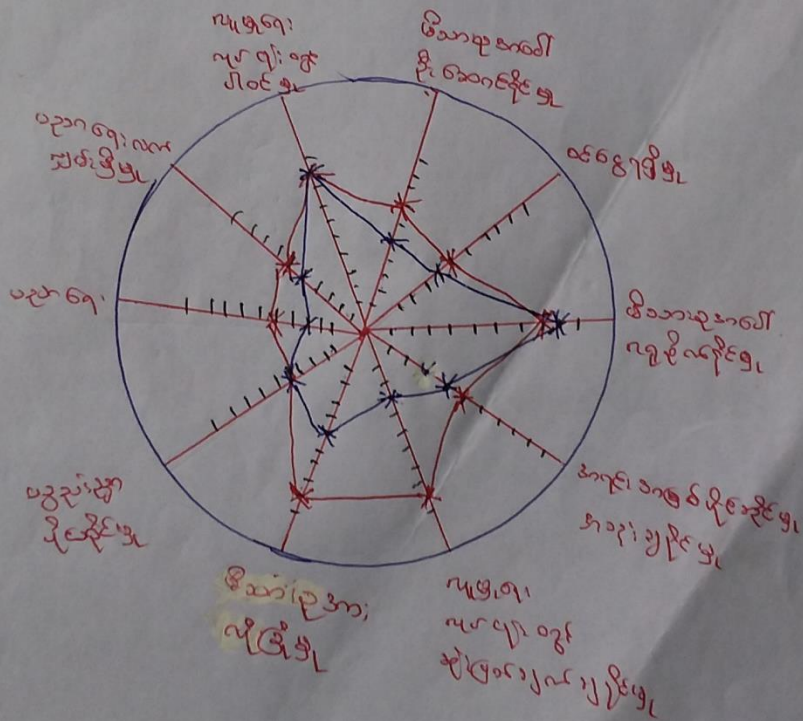 လူမှုရေး
လုပ်ငန်းတွင်
ပါဝင်မှု
မိသားစုအပေါ်
ဦးဆောင်နိုင်မှု
ဝင်ငွေရရှိမှု
မိသားစုအပေါ်
လွှမ်းမိုးနိုင်မှု
အရင်းအမြစ်ပိုင်ဆိုင်မှု
အသုံးချနိုင်မှု
လူမှုရေး
လုပ်ငန်းတွင်
ဆုံးဖြတ်ချက်ချနိုင်မှု
မိသားစုအား
လုံခြုံမှု
ပစ္စည်းဥစ္စာ
ပိုင်ဆိုင်မှု
ပညာရေး
ပညာရေးလက်
လှမ်းမှီမှု